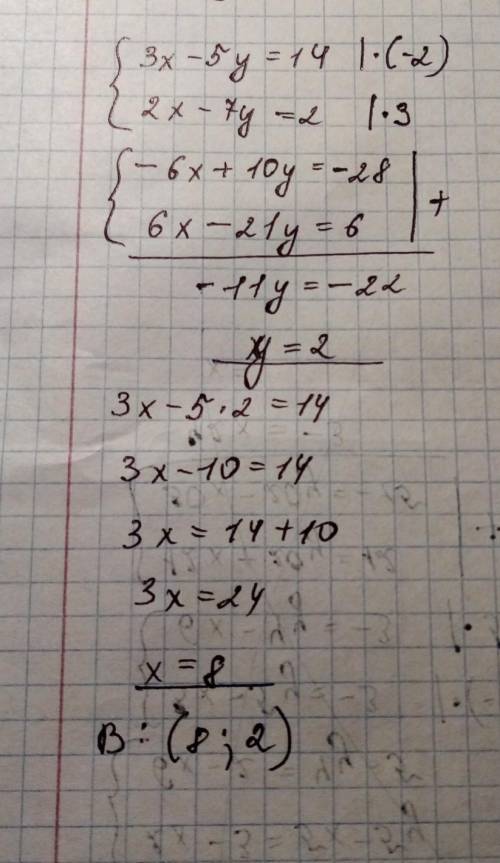 { 3x - 5y = 14 | · (-2)
2x - 7y = 2 | · 3
{ - 6x + 10y = -28 | +
6x - 21y = 6
- 11y = - 22
y = 2
3x - 5 · 2 = 14
3x - 10 = 14
3x = 14 + 10
3x = 24
x = 8
В : (8 ; 2)